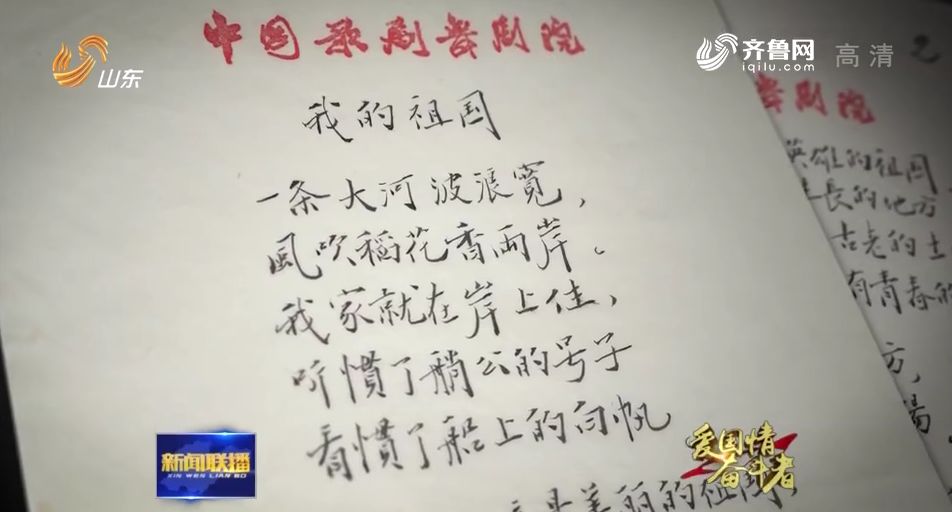 山东
齐鲁网
iqilu.com
高清
中国歌剧舞剧院
我的祖国
一条大河波浪寬，
風吹稻花香兩岸。
我家就在岸上住，
听慣了艄公的号子
看慣了船上的白帆
是美丽的祖国，
2
舞剧院
英雄的祖国
生長的地方
古老的土
有青春的
方，
新闻联播
XIN WEN LIAN BO
爱国情
奋斗者